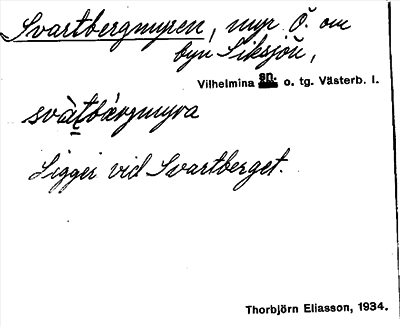 Svartbergmyren, myr Ö. om
byn Siksjön,
Vilhelmina sn. o. tg. Västerb. l.
svàt̠bárgmyra
Ligger vid Svartberget.
Thorbjörn Eliasson, 1934.